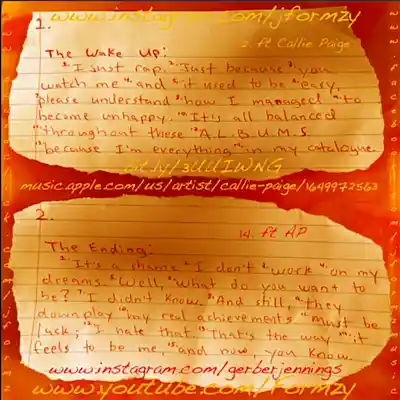 www.instagram.com/jformzy
1.
2. ft Callie Paige
The Wake Up:
1.I just rap. 2.Just because 3.you
watch me 4.and 5.it used to be 6.easy,
7.please understand 8.how I managed 9.to
become unhappy. 10.It's all balanced
11.throughout these 12.A.L.B.U.M.S
13.because I'm everything 14.on my catalogue.
bit.ly/3UUIWNG
music.apple.com/us/artist/callie-paige/1649972563
2.
14. ft AP
The Ending:
1.It's a shame 2.I don't 3.work 4.on my
dreams. 5.Well, 6.what do you want to
be? 7.I didn't know. 8.And still, 9.they
downplay 10.my real achievements 11.must be
luck; 12.I hate that. 13.That's the way 14.it
feels to be me, 15.and now, you know.
www.instagram.com/gerberjennings
www.youtube.com/formzy